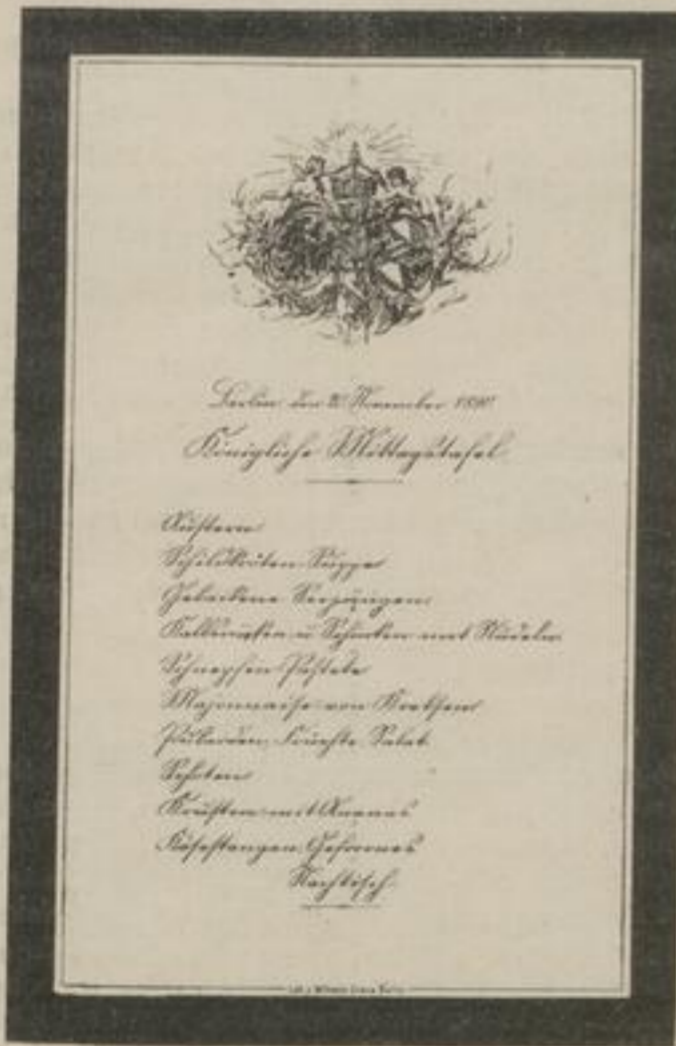 Berlin den November 1890
Königliche Mittagstafel
Austern
Schildkröten-Suppe
Gebackene Seezungen
Kalbsnuß u Schinken mit Nudeln
Schnepfen Pastete
Majonnaise von Krebsen
Poularden, Früchte Salat
Schoten
Krusten mit Ananas
Käsestangen, Gefrornes
Nachtisch